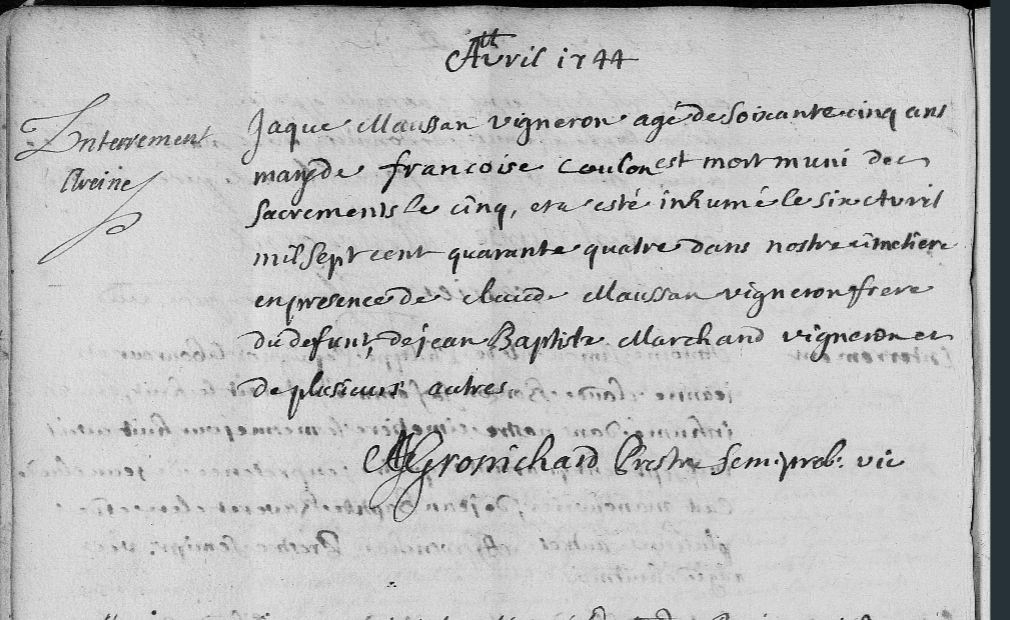 Avril 1744
Enterrement
Jaque Maussan vigneron agé de soixante cinq ans
mary de francoise coulon est mort muni des
sacrements le cinq, et a esté inhumé le six Avril
mil sept cent quarante quatre dans nostre cimetiere
en presence de claude Maussan vigneron frere
du defunt, de jean Baptiste Marchand vigneron et
de plusieurs autres
Gronichard Prestre semipreb. vic